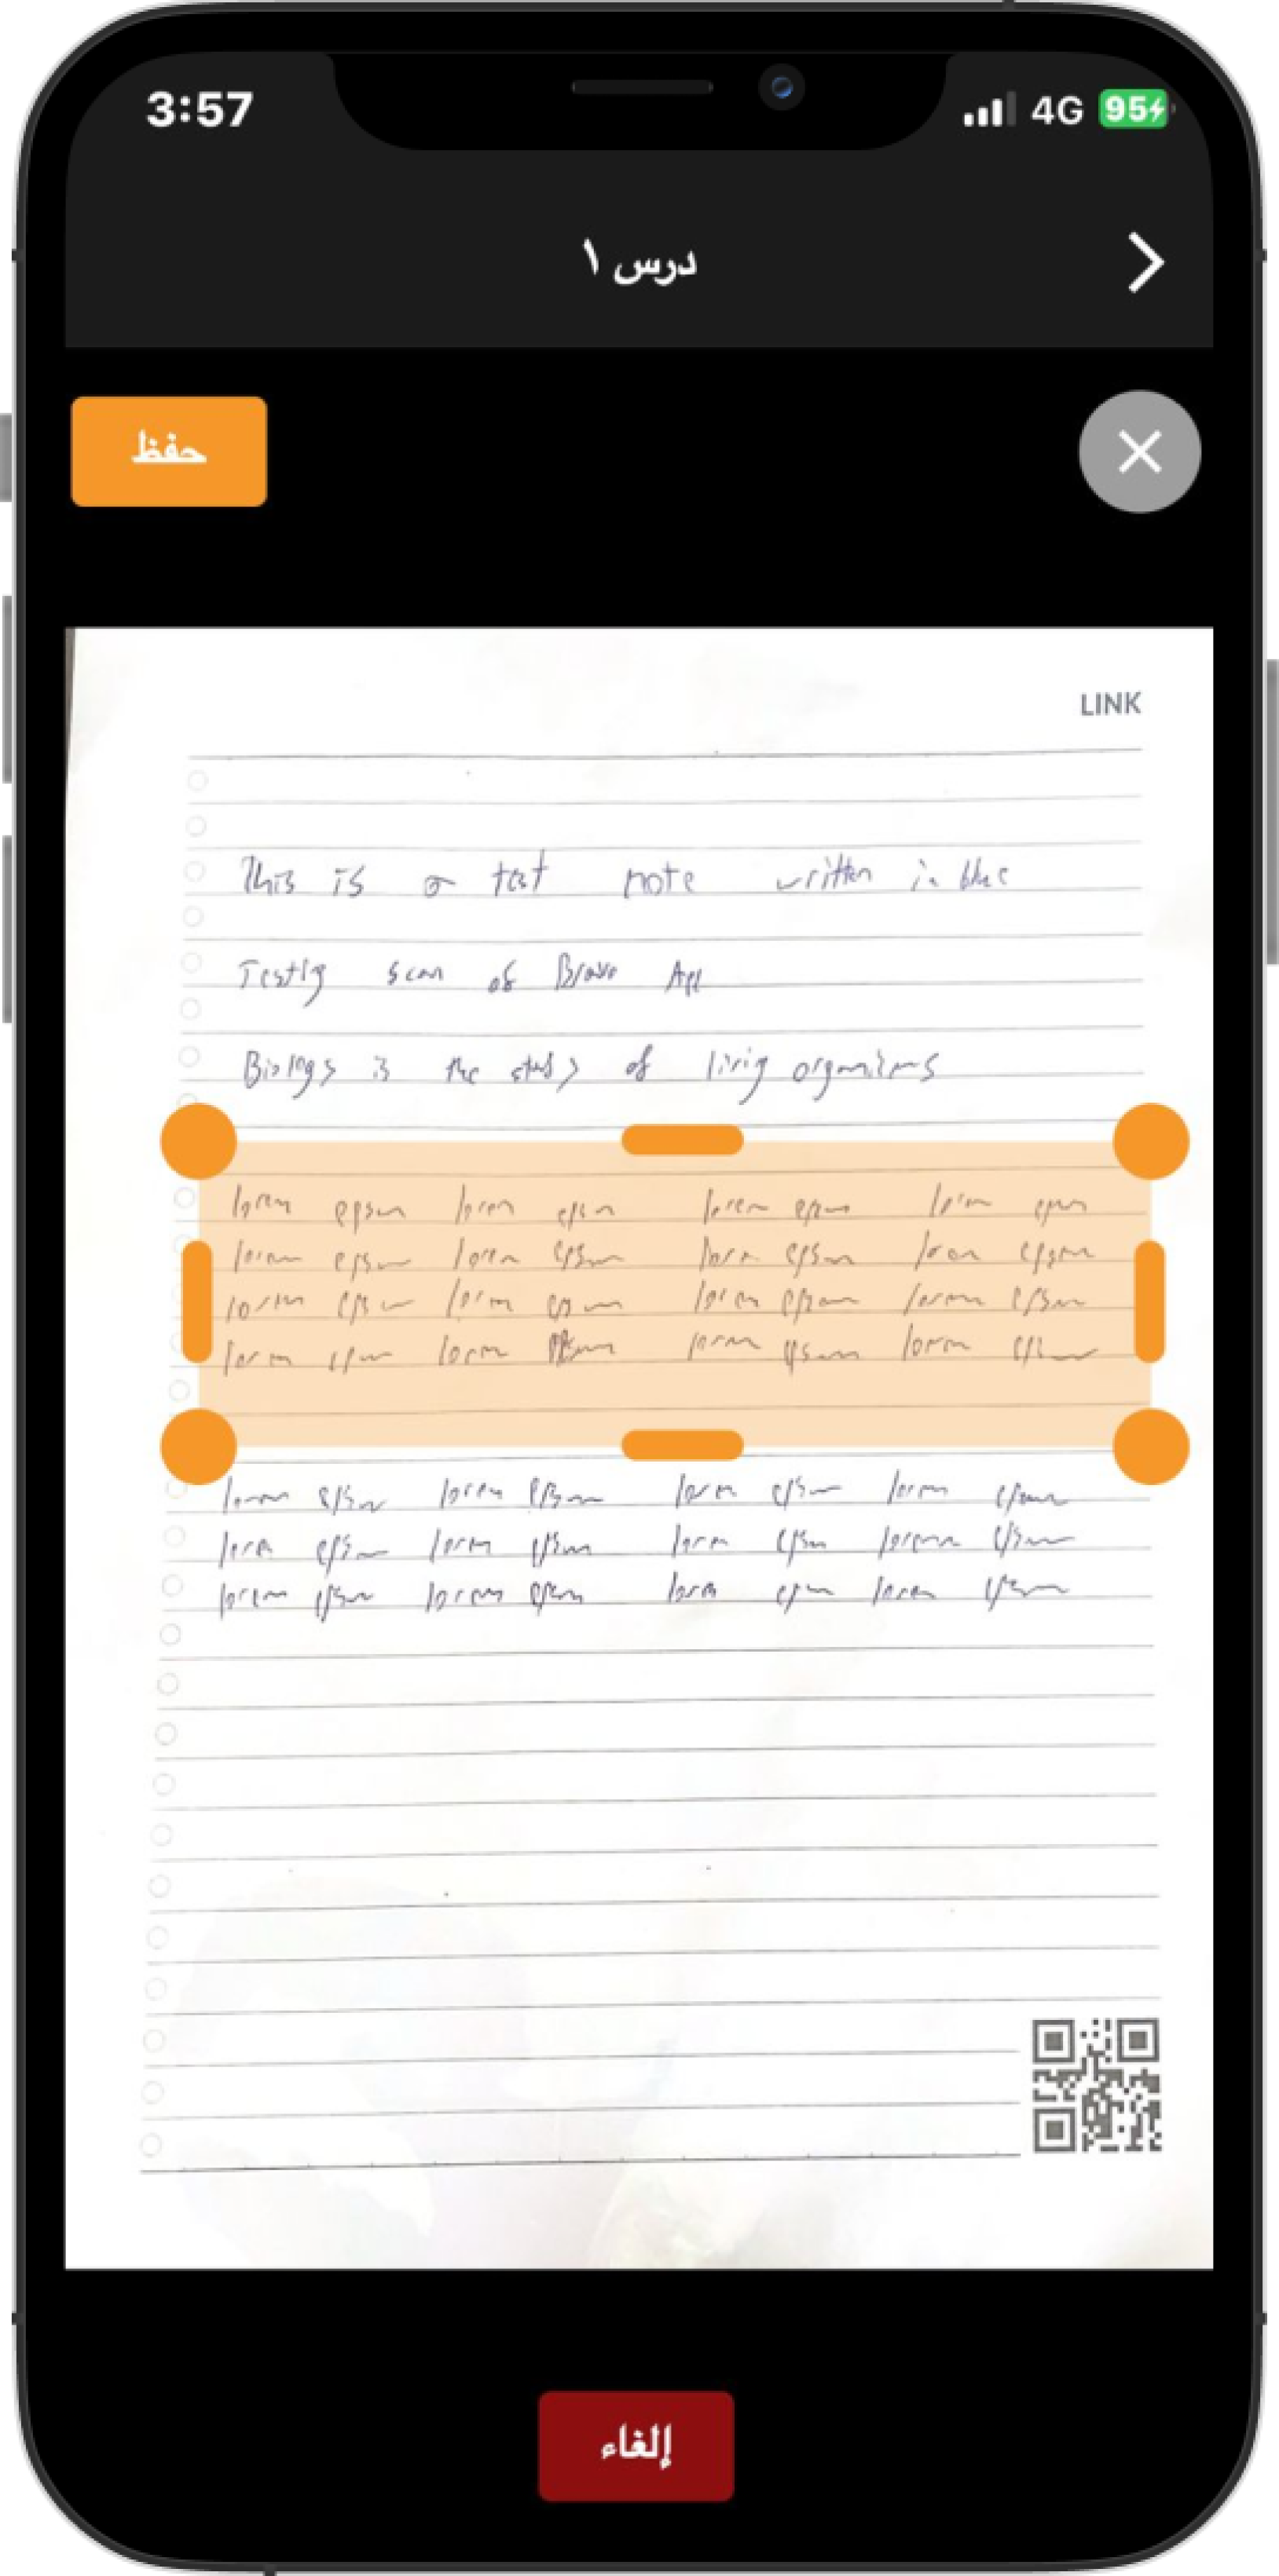 3:57 4G 95
درس ١
حفظ
LINK
This is a test note written in blue
Testig scan of Bravo App
Biology is the study of livig organisms
lorem epsum lorem epsum lorem epsum lorem epsum
lorem epsum lorem epsum lorem epsum lorem epsum
lorem epsum lorem epsum lorem epsum lorem epsum
lorem epsum lorem epsum lorem epsum lorem epsum
lorem epsum lorem epsum lorem epsum lorem epsum
lorem epsum lorem epsum lorem epsum lorem epsum
lorem epsum lorem epsum lorem epsum lorem epsum
إلغاء